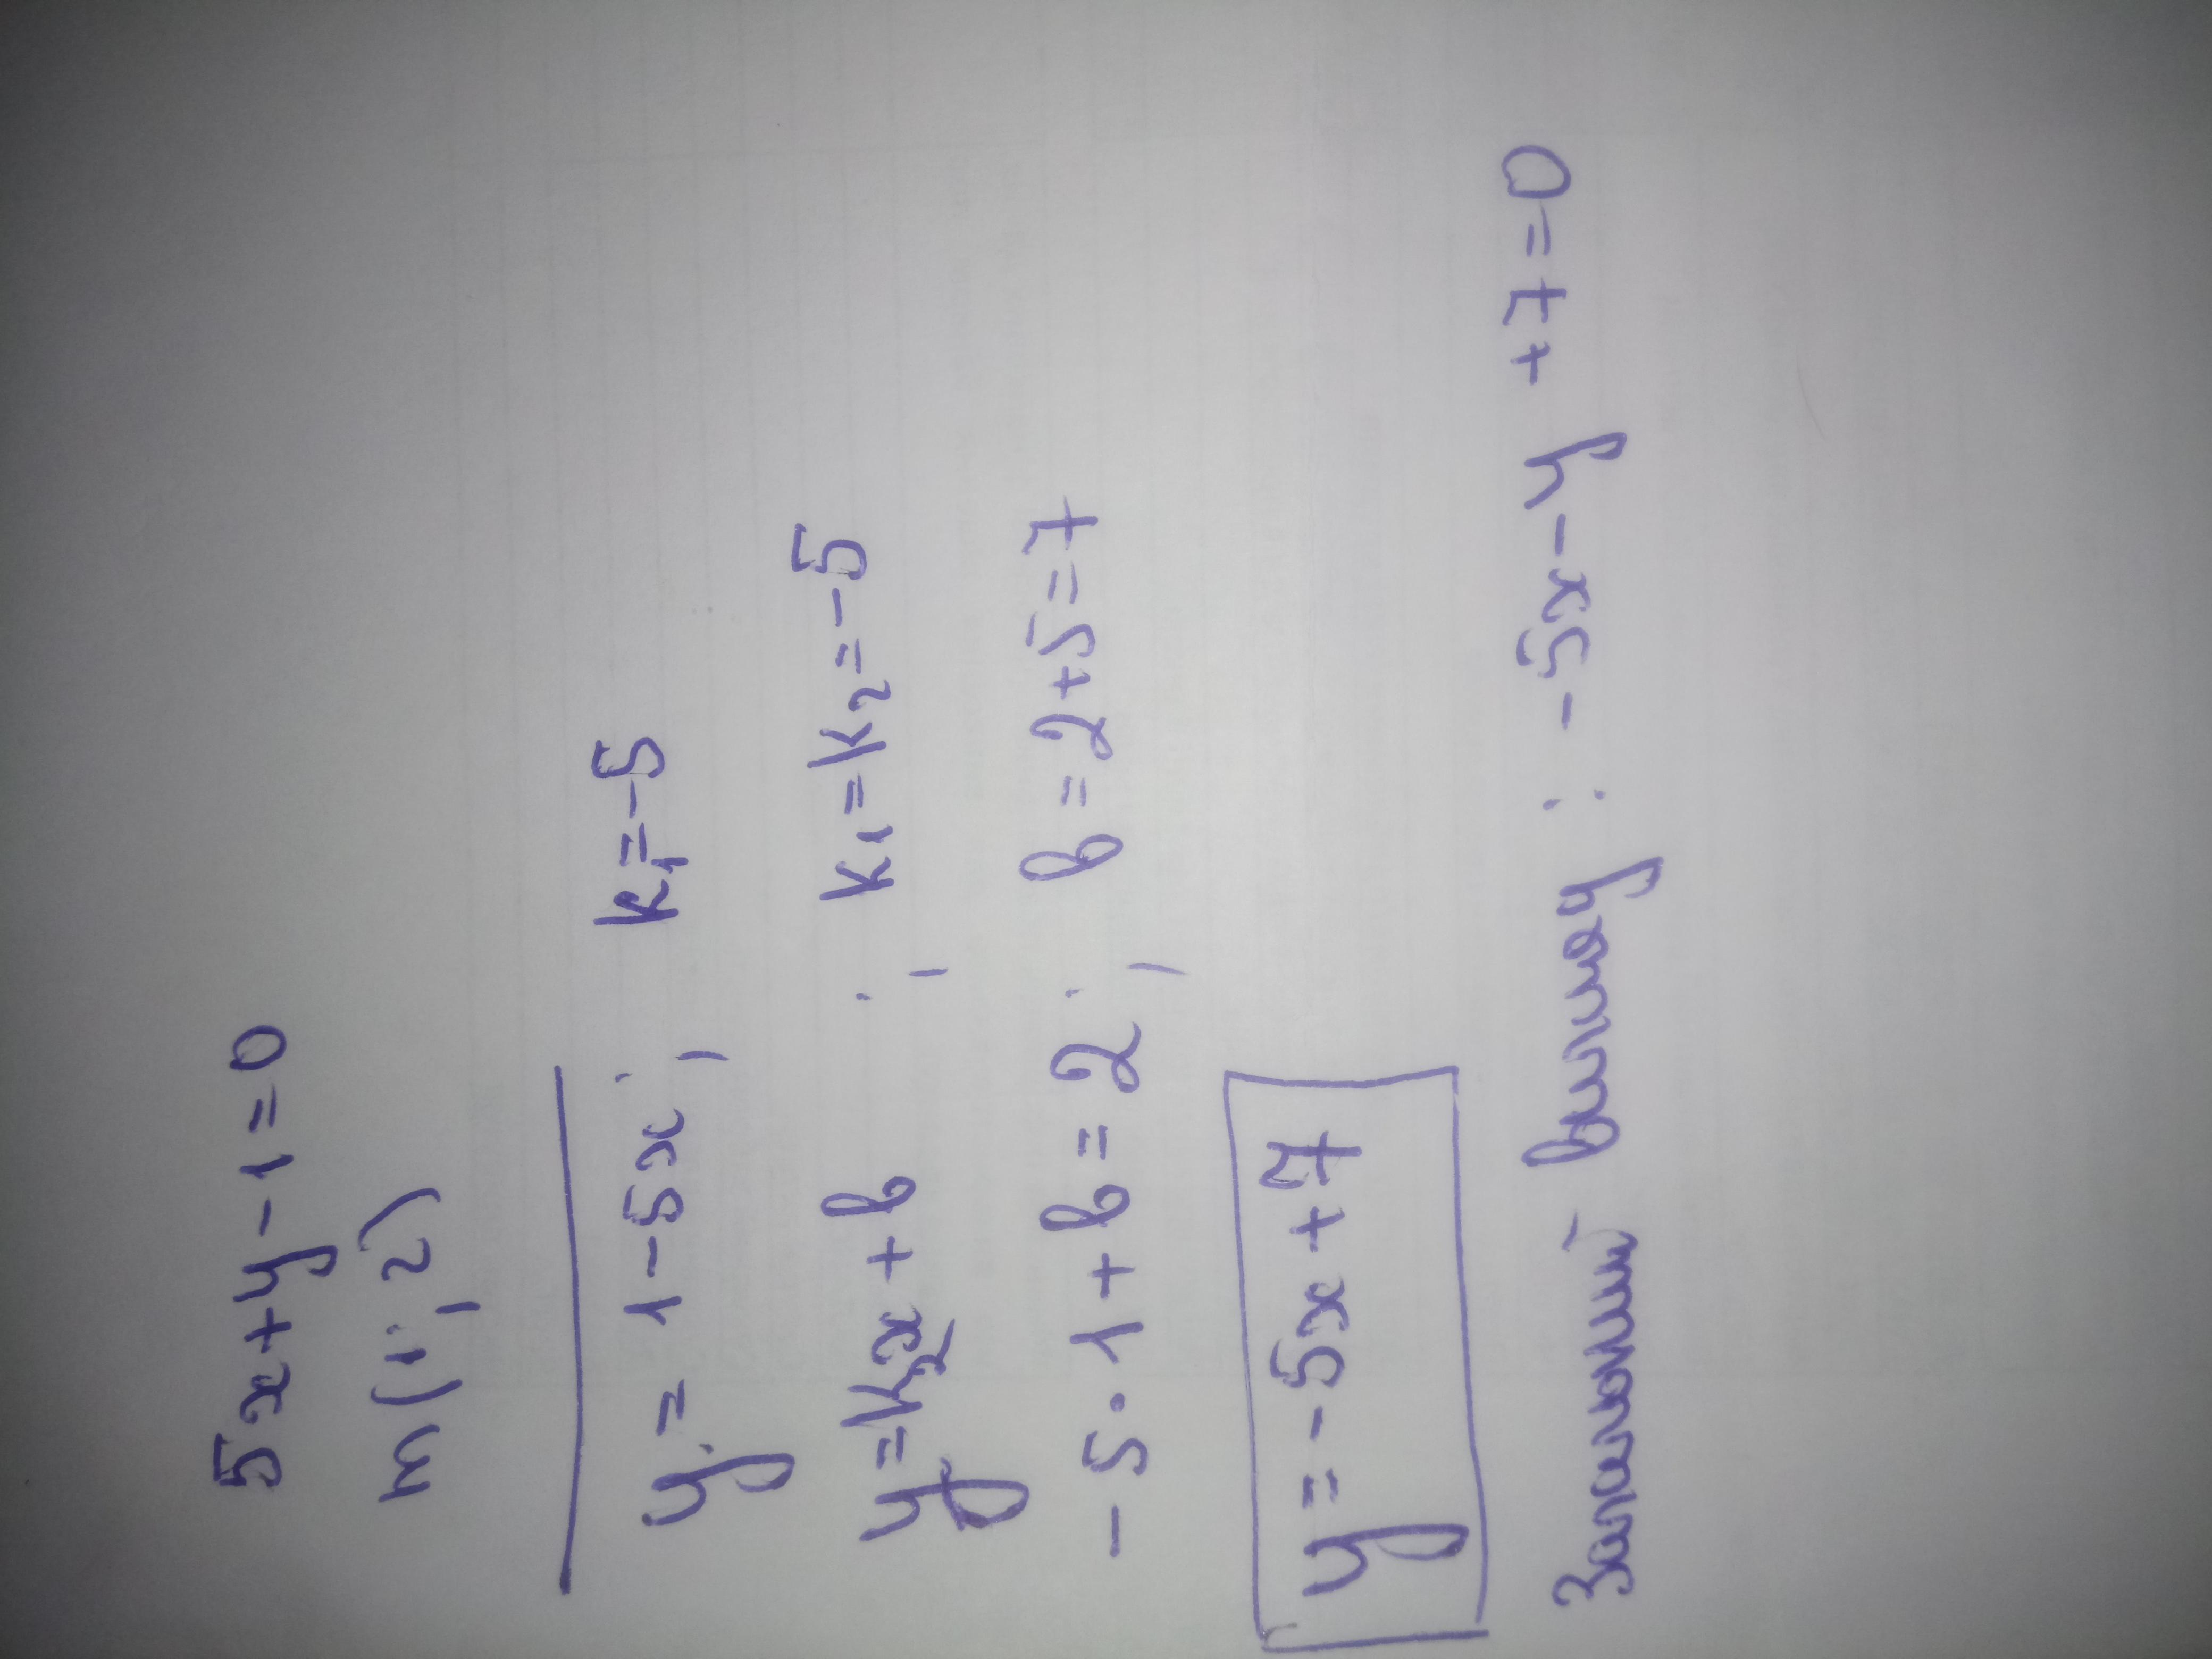 5x+y-1=0
m(1;2)
y=1-5x; k₁=-5
y=k₂x+b; k₁=k₂=-5
-5·1+b=2; b=2+5=7
y=-5x+7
Загальний вигляд: -5x-y+7=0